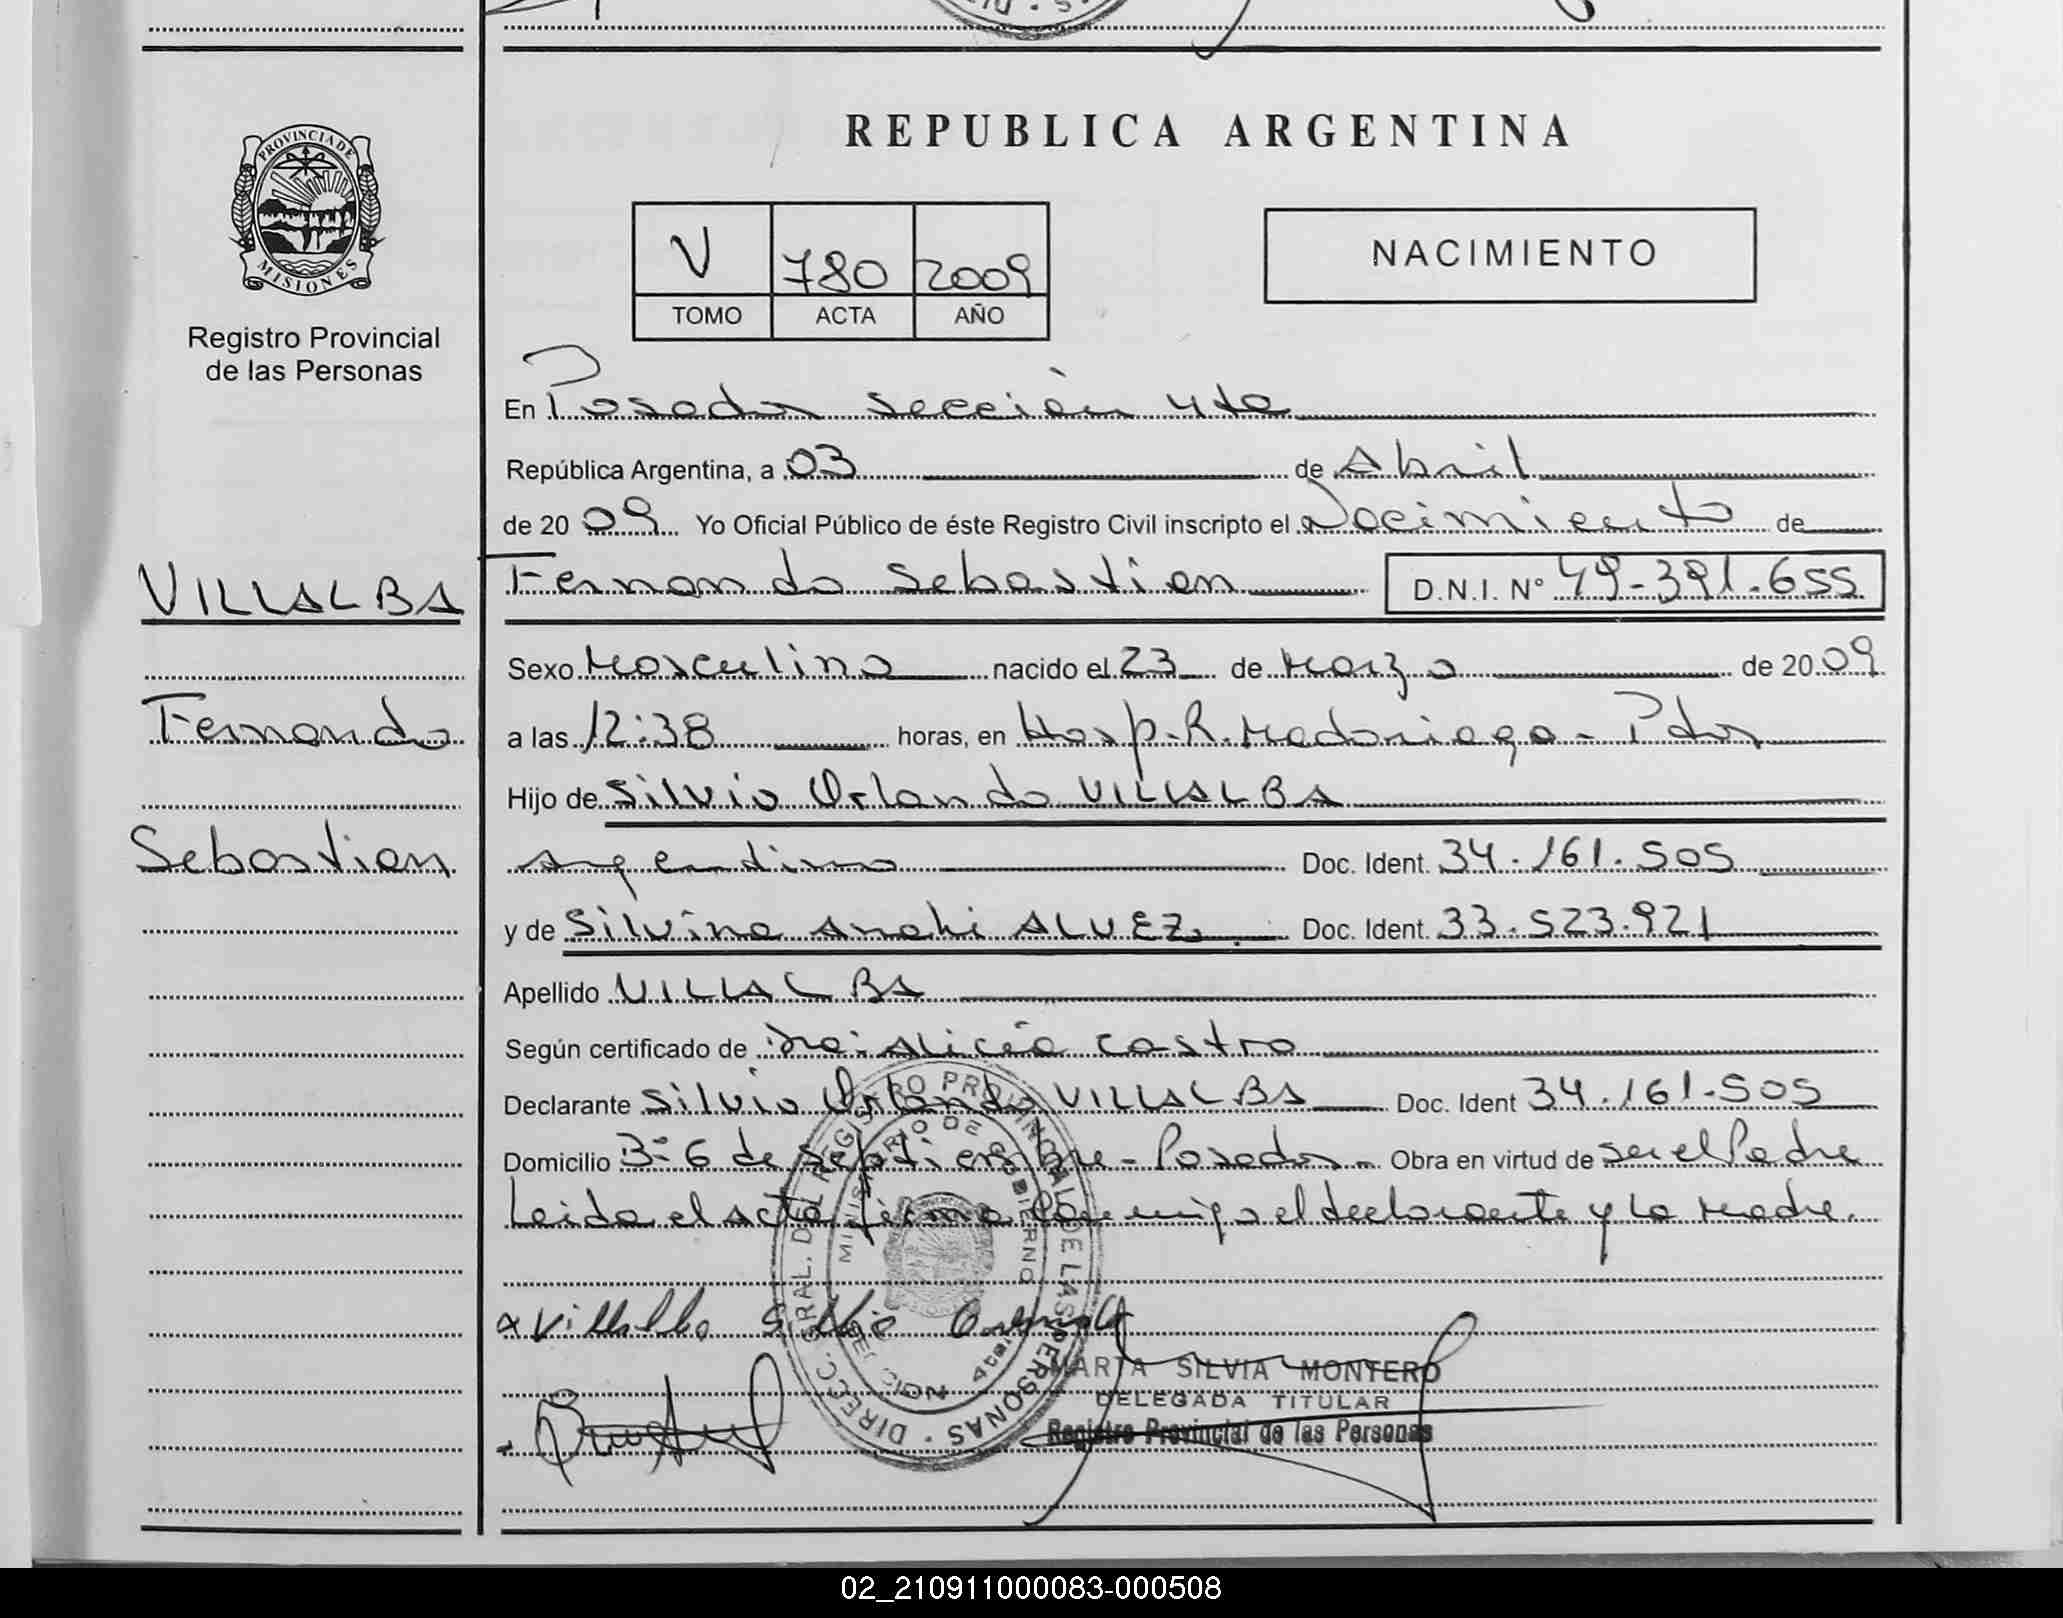 REPUBLICA ARGENTINA
PROVINCIA DE
MISIONES
Registro Provincial
de las Personas
V 780 2009
TOMO ACTA AÑO
NACIMIENTO
En Posadas sección 4ta
República Argentina, a 03 de Abril
de 2009 Yo Oficial Público de éste Registro Civil inscripto el Nacimiento de
VILLALBA
Fernando
Sebastian
Fernando Sebastian D.N.I. Nº 49-391.655
Sexo Masculino nacido el 23 de Marzo de 2009
a las 12:38 horas, en Hosp. R. Madariaga - Pdas
Hijo de Silvio Orlando VILLALBA
Argentino Doc. Ident. 34.161.505
y de Silvina Anahi ALVEZ Doc. Ident. 33.523.921
Apellido VILLALBA
Según certificado de Dra: Alicia Castro
Declarante Silvio Orlando VILLALBA Doc. Ident 34.161.505
Domicilio B: 6 de Septiembre - Posadas - Obra en virtud de ser el Padre
Leida el acta firma conmigo el declarante y la madre.
Villalba Silvio Orlando
DIRECC. GRAL. DEL REGISTRO PROVINCIAL DE LAS PERSONAS
MINISTERIO DE GOBIERNO
4ta
MARTA SILVIA MONTERO
DELEGADA TITULAR
Registro Provincial de las Personas
02_210911000083-000508